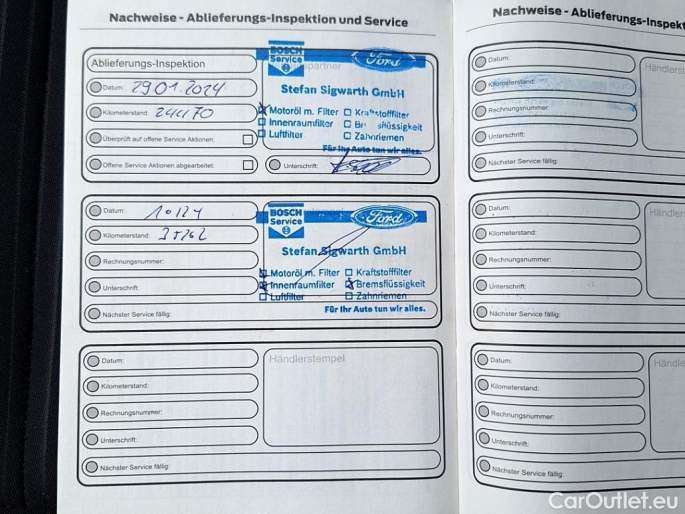 Nachweise - Ablieferungs-Inspektion und Service
Ablieferungs-Inspektion
Datum: 29.01.2024
Kilometerstand:
Überprüft auf offene Service Aktionen:
Offene Service Aktionen abgearbeitet:
BOSCH
Service
Ford
Stefan Sigwarth GmbH
Motoröl m. Filter
Kraftstofffilter
Innenraumfilter
Bremsflüssigkeit
Luftfilter
Zahnriemen
Für Ihr Auto tun wir alles.
Unterschrift:
Datum:
Kilometerstand:
Rechnungsnummer:
Unterschrift:
Nächster Service fällig:
BOSCH
Service
Ford
Stefan Sigwarth GmbH
Motoröl m. Filter
Kraftstofffilter
Innenraumfilter
Bremsflüssigkeit
Luftfilter
Zahnriemen
Für Ihr Auto tun wir alles.
Datum:
Kilometerstand:
Rechnungsnummer:
Unterschrift:
Nächster Service fällig:
Händlerstempel
Nachweise - Ablieferungs-Inspekt
Datum:
Kilometerstand:
Rechnungsnummer:
Unterschrift:
Nächster Service fällig:
Händlerst
Datum:
Kilometerstand:
Rechnungsnummer:
Unterschrift:
Nächster Service fällig:
Händlers
Datum:
Kilometerstand:
Rechnungsnummer:
Unterschrift:
Nächster Service fällig:
Händle
CarOutlet.eu